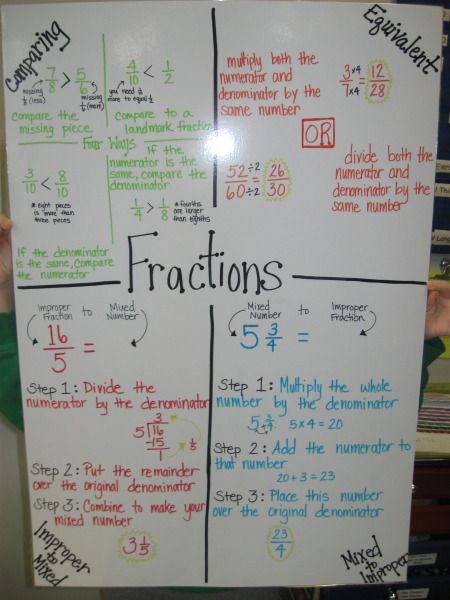 Comparing
7/8 > 5/6
missing 1/8 (less)
missing 1/6 (more)
compare the
missing piece
4/10 < 1/2
you need 1/10
more to equal 1/2
compare to a
landmark fraction
Four Ways
3/10 < 8/10
* eight pieces
is more than
three pieces
If the denominator
is the same, compare
the numerator
If the
numerator is the
same, compare the
denominator
1/4 > 1/8
* fourths are
larger
than eighths
Equivalent
multiply both the
numerator and
denominator by the
same number
3 ×4 / 7 ×4 = 12/28
OR
52 ÷2 / 60 ÷2 = 26/30
divide both the
numerator and
denominator by the
same number
Fractions
Improper Fraction to Mixed Number
16/5 =
Step 1: Divide the
numerator by the denominator
3
5)16
-15
1
1/5
Step 2: Put the remainder
over the original denominator
Step 3: Combine to make your
mixed number
3 1/5
Improper
to
Mixed
Mixed Number to Improper Fraction
5 3/4 =
Step 1: Multiply the whole
number by the denominator
5 3/4 5 x 4 = 20
Step 2: Add the numerator to
that number
20 + 3 = 23
Step 3: Place this number
over the original denominator
23/4
Mixed to
Improper